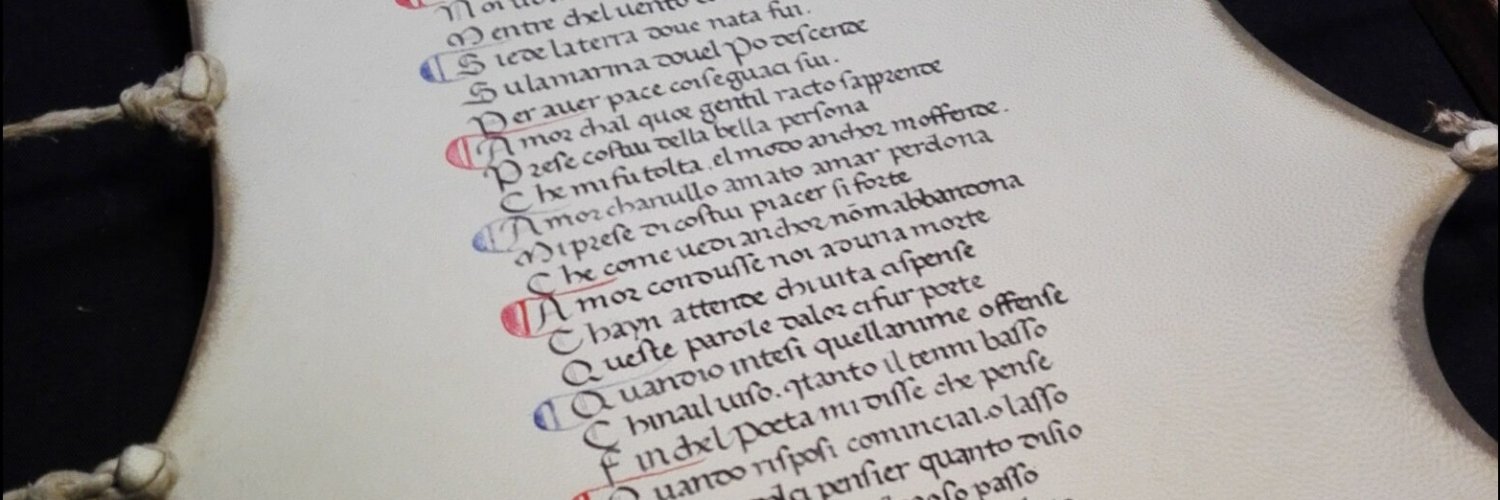 Mentre chel uento
Siede laterra doue nata fui.
Sulamarina douel Po descende
Per auer pace coiseguaci sui.
Amor chal quor gentil racto sapprende
Prese costui della bella persona
Che mi fu tolta .el modo anchor moffende.
Amor chanullo amato amar perdona
Mi prese di costui piacer si forte
Che come uedi anchor nōmabbandona
Amor condusse noi aduna morte
Chayn attende chi uita cispense
Queste parole dalor cifur porte
Quandio intesi quellanime offense
Chinail uiso. 7tanto il tenni basso
Finchel Poeta mi disse che pense
Quando risposi cominciai.o lasso
pensier quanto disio
passo